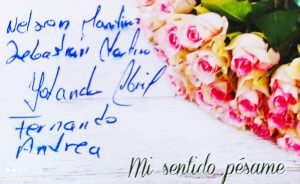 Nelson Martinez
Sebastian Martinez
Yolanda Abril
Fernando
Andrea
Mi sentido pésame